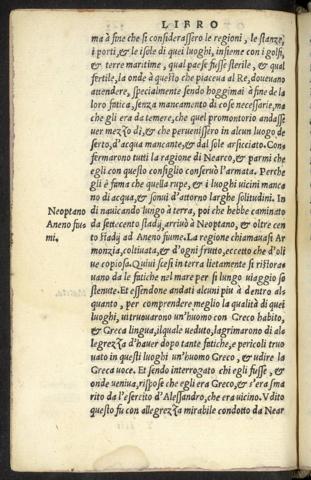 LIBRO
ma à fine che si considerassero le regioni, le stanze,
i porti, & le isole di quei luoghi, insieme con i golfi,
& terre maritime, qual paese fusse sterile, & qual
fertile, la onde à questo che piaceua al Re, doueuano
attendere, specialmente sendo hoggimai à fine de la
loro fatica, senza mancamento di cose necessarie, ma
che gli era da temere, che quel promontorio andasse
uer mezzo dì, & che peruenissero in alcun luogo de
serto, d'acqua mancante, & dal sole arsicciato. Con
fermarono tutti la ragione di Nearco, & parmi che
egli con questo consiglio conseruò l'armata. Perche
gli è fama che quella rupe, & i luoghi uicini manca
no di acqua, & sonui d'attorno larghe solitudini. In
Neoptano
di nauicando lungo à terra, poi che hebbe caminato
Aneno fiu
da settecento stadij, arriuò à Neoptano, & oltre cen
mi.
to stadij ad Aneno fiume. La regione chiamauasi Ar
monzia, coltiuata, & d'ogni frutto, eccetto che d'oli
ue copiosa. Quiui scesi in terra lietamente si ristora
uano da le fatiche nel mare per sì lungo uiaggio so
stenute. Et essendone andati alcuni piu à dentro als
quanto, per comprendere meglio la qualità di quei
luoghi, ui trouarono un'huomo con Greco habito,
& Greca lingua, il quale ueduto, lagrimarono di al
legrezza d'hauer dopo tante fatiche, e pericoli trou
uato in questi luoghi un'huomo Greco, & udire la
Greca uoce. Et sendo interrogato chi egli fusse, &
onde ueniua, rispose che egli era Greco, & s'era sma
rito da l'esercito d'Alessandro, che era uicino. Vdito
questo fu con allegrezza mirabile condotto da Near